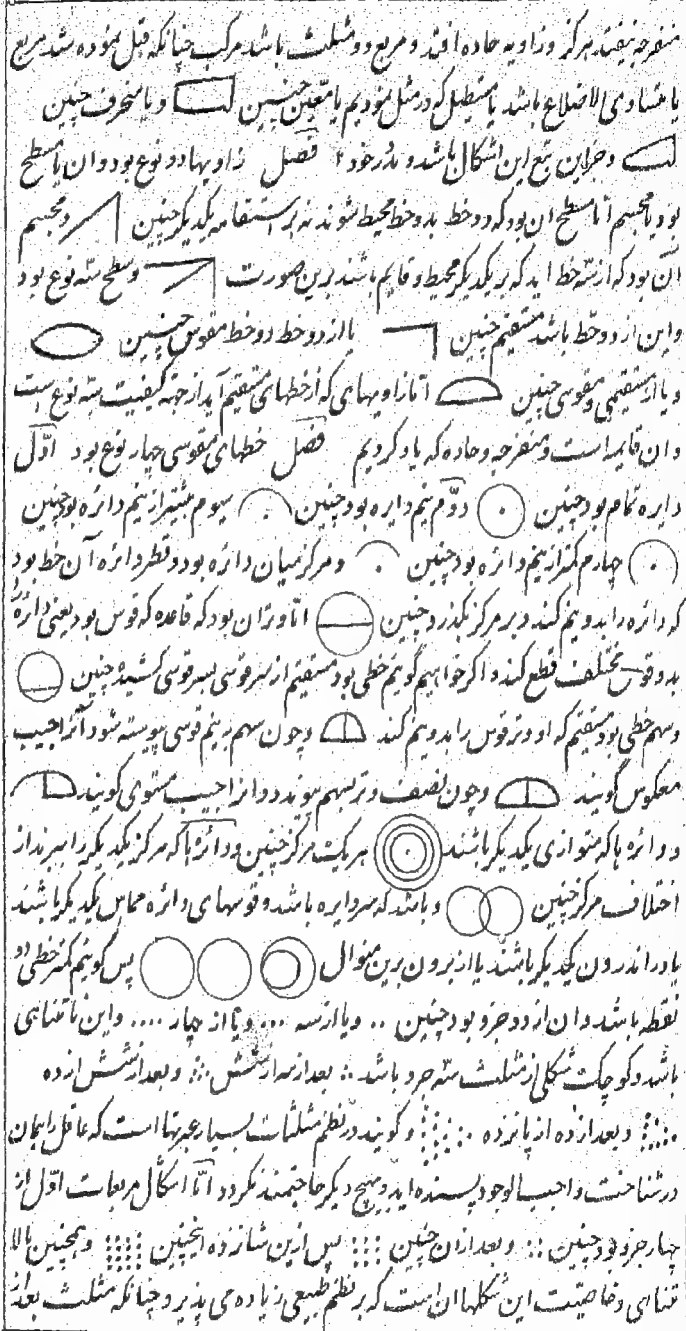 منفرجه نیفتد هرگز وزاویه حاده افتد و مربع دو مثلث باشد مرکب چنانکه قبل نموده شد مربع
یا متساوی الاضلاع باشد یا مستطیل که در مثل نمودیم یا معین چنین و یا منحرف چنین
و جز این تبع این اشکال باشد و خود فصل زاویها دو نوع بود و ان یا مسطح
بود یا مجسم اما مسطح ان بود که دو خط بدو خط محیط شوند نه بر استقامه یکدیگر چنین و مجسم
ان بود که از سه خط اید که بر یکدیگر محیط و قایم باشند برین صورت و سطح سه نوع بود
و این از دو خط باشد مستقیم چنین یا از دو خط مقوس چنین
و یا از مستقیمی و مقوسی چنین اما زاویهای که از خطهای مستقیم آید از جهة کیفیت سه نوع است
و ان قایمه است و منفرجه و حاده که یاد کردیم فصل خطهای مقوسی چهار نوع بود اول
دایره تمام بود چنین دوم نیم دایره بود چنین سیوم بیشتر از نیم دائره بود چنین
چهارم کمتر از نیم دائره بود چنین و مرکز میان دائره بود و قطر دائره آن خط بود
که دائره را بدو نیم کند و بر مرکز بگذرد چنین اما وتر ان بود که قاعده قوس بود یعنی دائره را
بدو قوس مختلف قطع کند و اگر خواهیم گوییم خطی بود مستقیم از سر قوسی بسر قوسی کشیده چنین
و سهم خطی بود مستقیم که او وتر قوس را بدو نیم کند و چون سهم بنیم قوسی پیوسته شود آنرا جیب
معکوس گویند و چون نصف وتر بسهم پیوندد و انرا جیب مستوی گویند
و دائره ها که متوازی یکدیگر باشند بر یک مرکز چنین و دائرها که مرکز یکدیگر را ببرند از
اختلاف مرکز چنین و باشد که هر دایره باشد و قوسهای دائره مماس یکدیگر باشند
یا در اندرون یکدیگر باشند یا از برون برین منوال پس گوییم کمتر خطی دو
نقطه باشد و ان از دو جزو بود چنین .. و یا از سه ... و یا از چهار .... و این نا متناهی
باشد و کوچک شکلی از مثلث سه جزو باشد بعد از سه از شش و بعد از شش از ده
و بعد از ده از پانزده و گویند در نظم مثلثات بسیار عبرتها است که عاقل را بجان
در شناخت واجب الوجود پسنده اید و بهیچ دیگر حاجتمند نگردد امّا اشکال مربعات اوّل از
چهار جزو بود چنین و بعد ازان چنین پس ازین شانزده اینچنین و همچنین بالا
متناهی و خاصیت این شکلها ان است که بر نظم طبیعی زیاده می پذیرد چنانکه مثلث بعد از